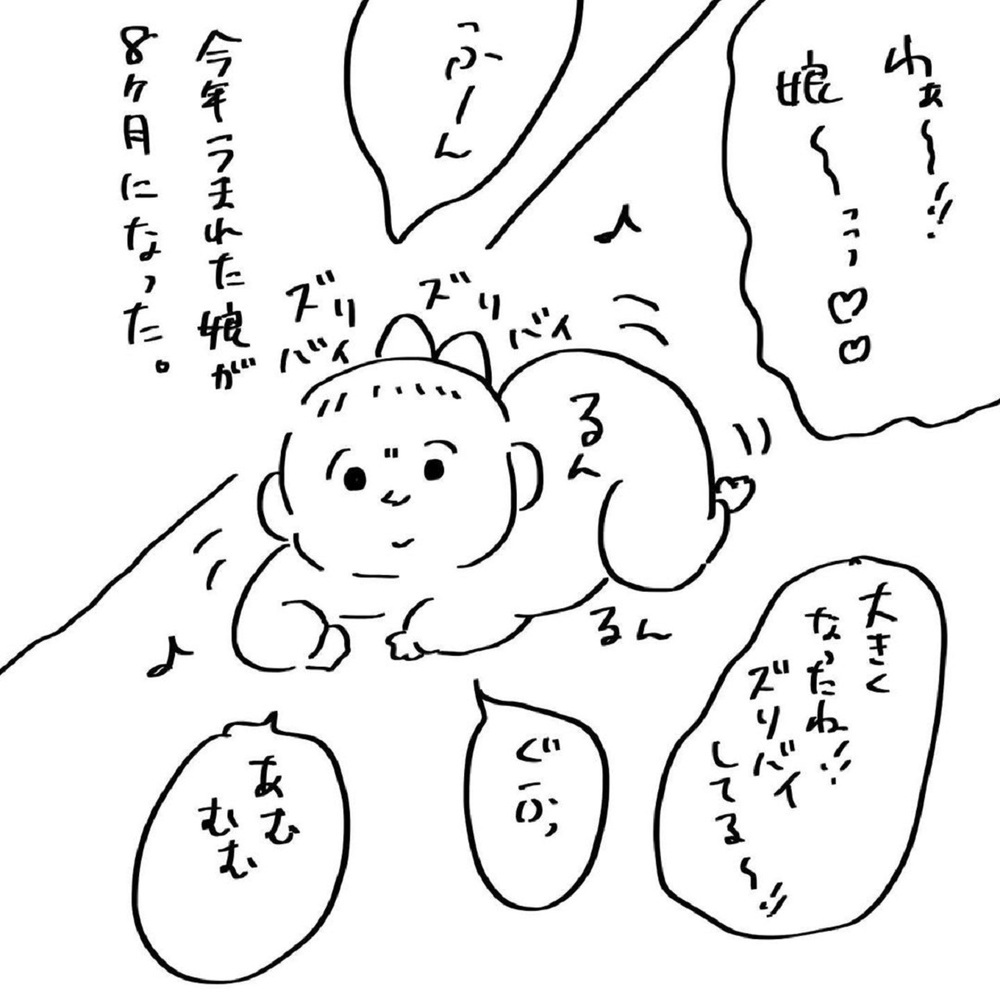 わぁ〜!!
娘〜〜っっっ♡♡
っふーん
今年うまれた娘が
8ヶ月になった。
ズリバイ
ズリバイ
るん
るん
大きく
なったね!!
ズリバイ
してる〜!!
ぐふっ
あむ
むむ